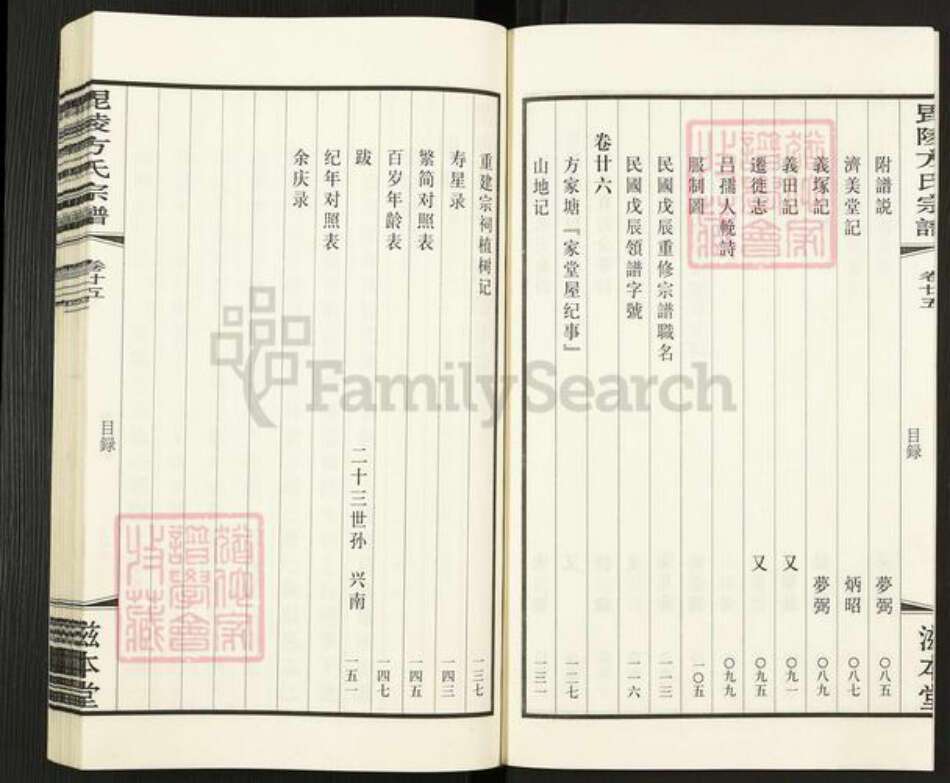 毘陵方氏宗譜
卷廿五
目録
滋本堂
附譜説 夢弼 〇八五
濟美堂記 炳昭 〇八七
義塚記 夢弼 〇八九
義田記 又 〇九一
遷徙志 又 〇九五
吕孺人輓詩 〇九九
服制圖 一〇五
民國戊辰重修宗譜職名 一一三
民國戊辰領譜字號 一一六
卷廿六
方家塘『家堂屋纪事』 一二七
山地记 一三一
重建宗祠植树记 一三七
寿星录 一四三
繁简对照表 一四五
百岁年龄表 一四七
跋 二十三世孙 兴南 一五一
纪年对照表
余庆录
毘陵方氏宗譜
卷廿五
目録
滋本堂
FamilySearch